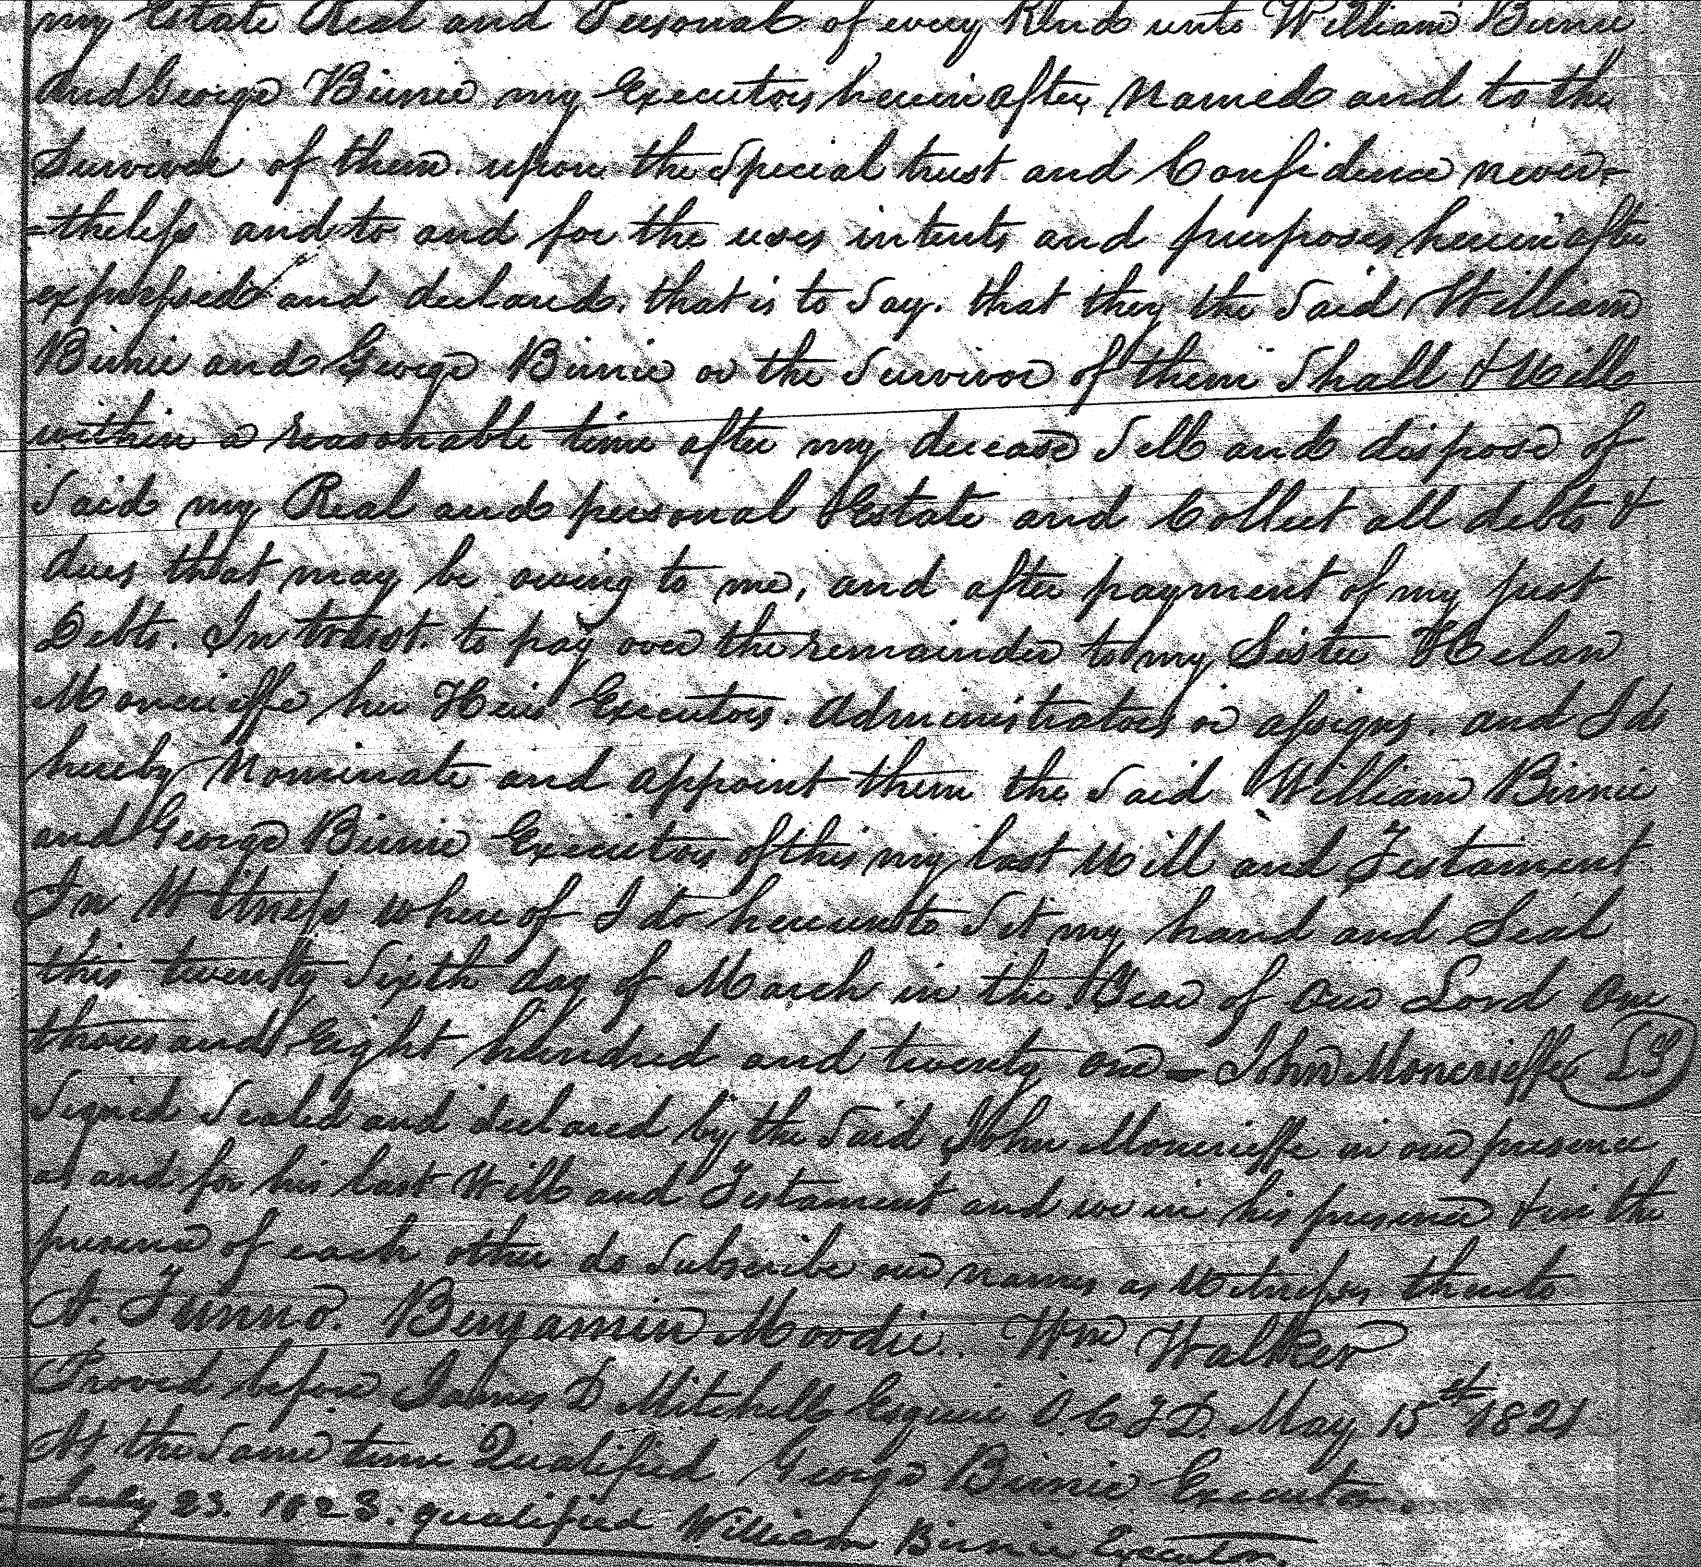 my Estate Real and Personal of every Kind unto William Birnie
and George Birnie my Executors herein after Named and to the
Survivor of them upon the Special trust and Confidence never=
=theless and to and for the uses intents and purposes herein after
expressed and declared. that is to Say. that they the Said William
Birnie and George Birnie or the Survivor of them Shall & Will
within a reasonable time after my decease Sell and dispose of
Said my Real and personal Estate and Collect all debts &
dues that may be owing to me, and after payment of my just
Debts. In trust. to pay over the remainder to my Sister Helan
Moncrieffe her Heirs Executors. Administrators or assigns. and I do
hereby Nominate and appoint them the Said William Birnie
and George Birnie Executors of this my last Will and Testament
In Witness whereof I do hereunto Set my hand and Seal
this twenty Sixth day of March in the Year of Our Lord One
thousand Eight hundred and twenty one — John Moncrieffe LS
Signed Sealed and declared by the Said John Moncrieffe in our presence
as and for his last Will and Testament and we in his presence & in the
presence of each other do Subscribe our names as Witnesses thereto
A. Tunno. Benjamin Moodie. Wm Walker
Proved before James D Mitchell Esquire O.C.T.D. May 15th 1821
At the Same time Qualified George Birnie Executor.
July 23. 1823. qualified William Birnie Executor.